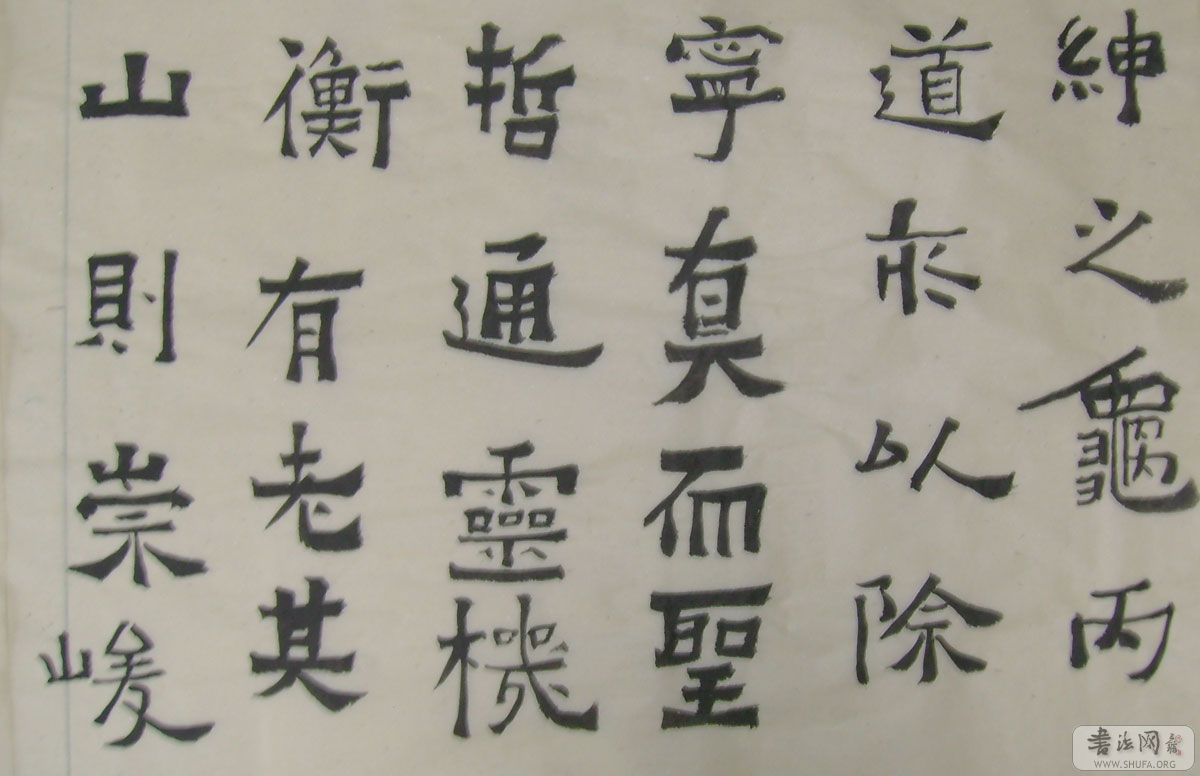 紳之龜丙
道於以除
寧真而聖
哲通靈機
衡有老其
山則崇峻
书法网
WWW.SHUFA.ORG